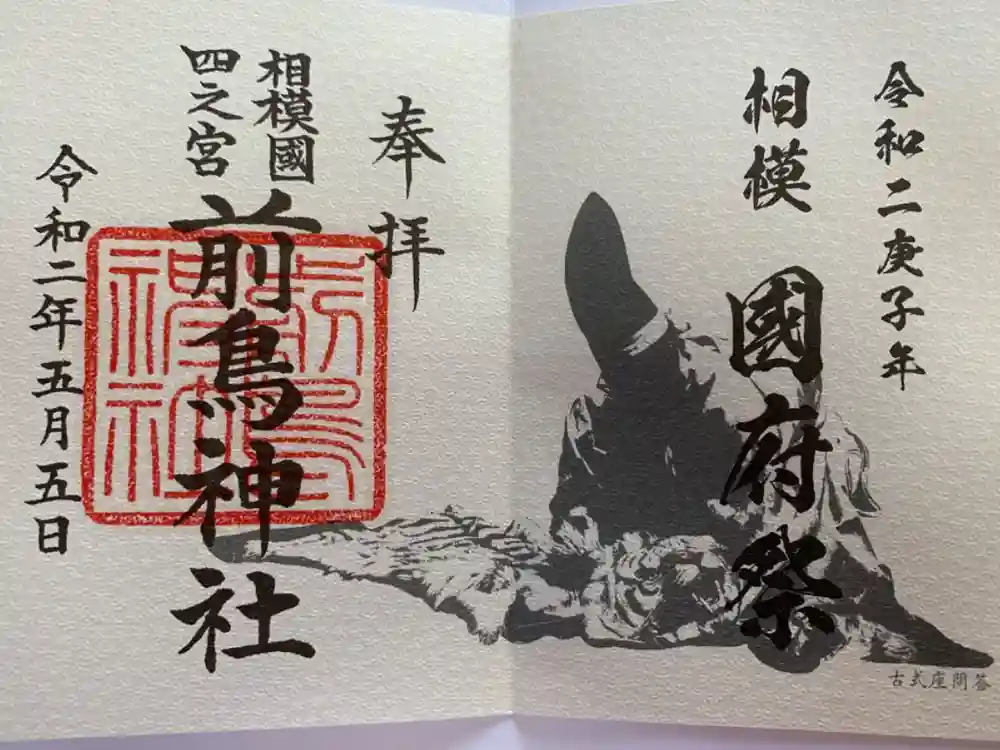 令和二庚子年
相模 國府祭
古式座問答
奉拝
相模國
四之宮
前鳥神社
令和二年五月五日